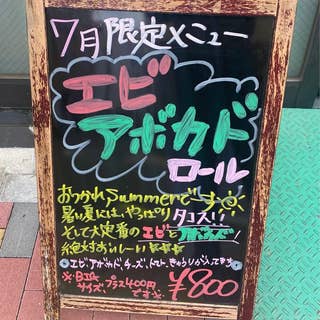 7月限定メニュー
エビ
アボカド
ロール
おつかれSummerです
暑い夏には、やっぱり タコス!!
そして大定番の エビと アボカド!
絶対おいしー!
エビ、アボカド、チーズ、トマト、きゅうりが入ってます
※BIG
サイズ プラス400円
です
¥800